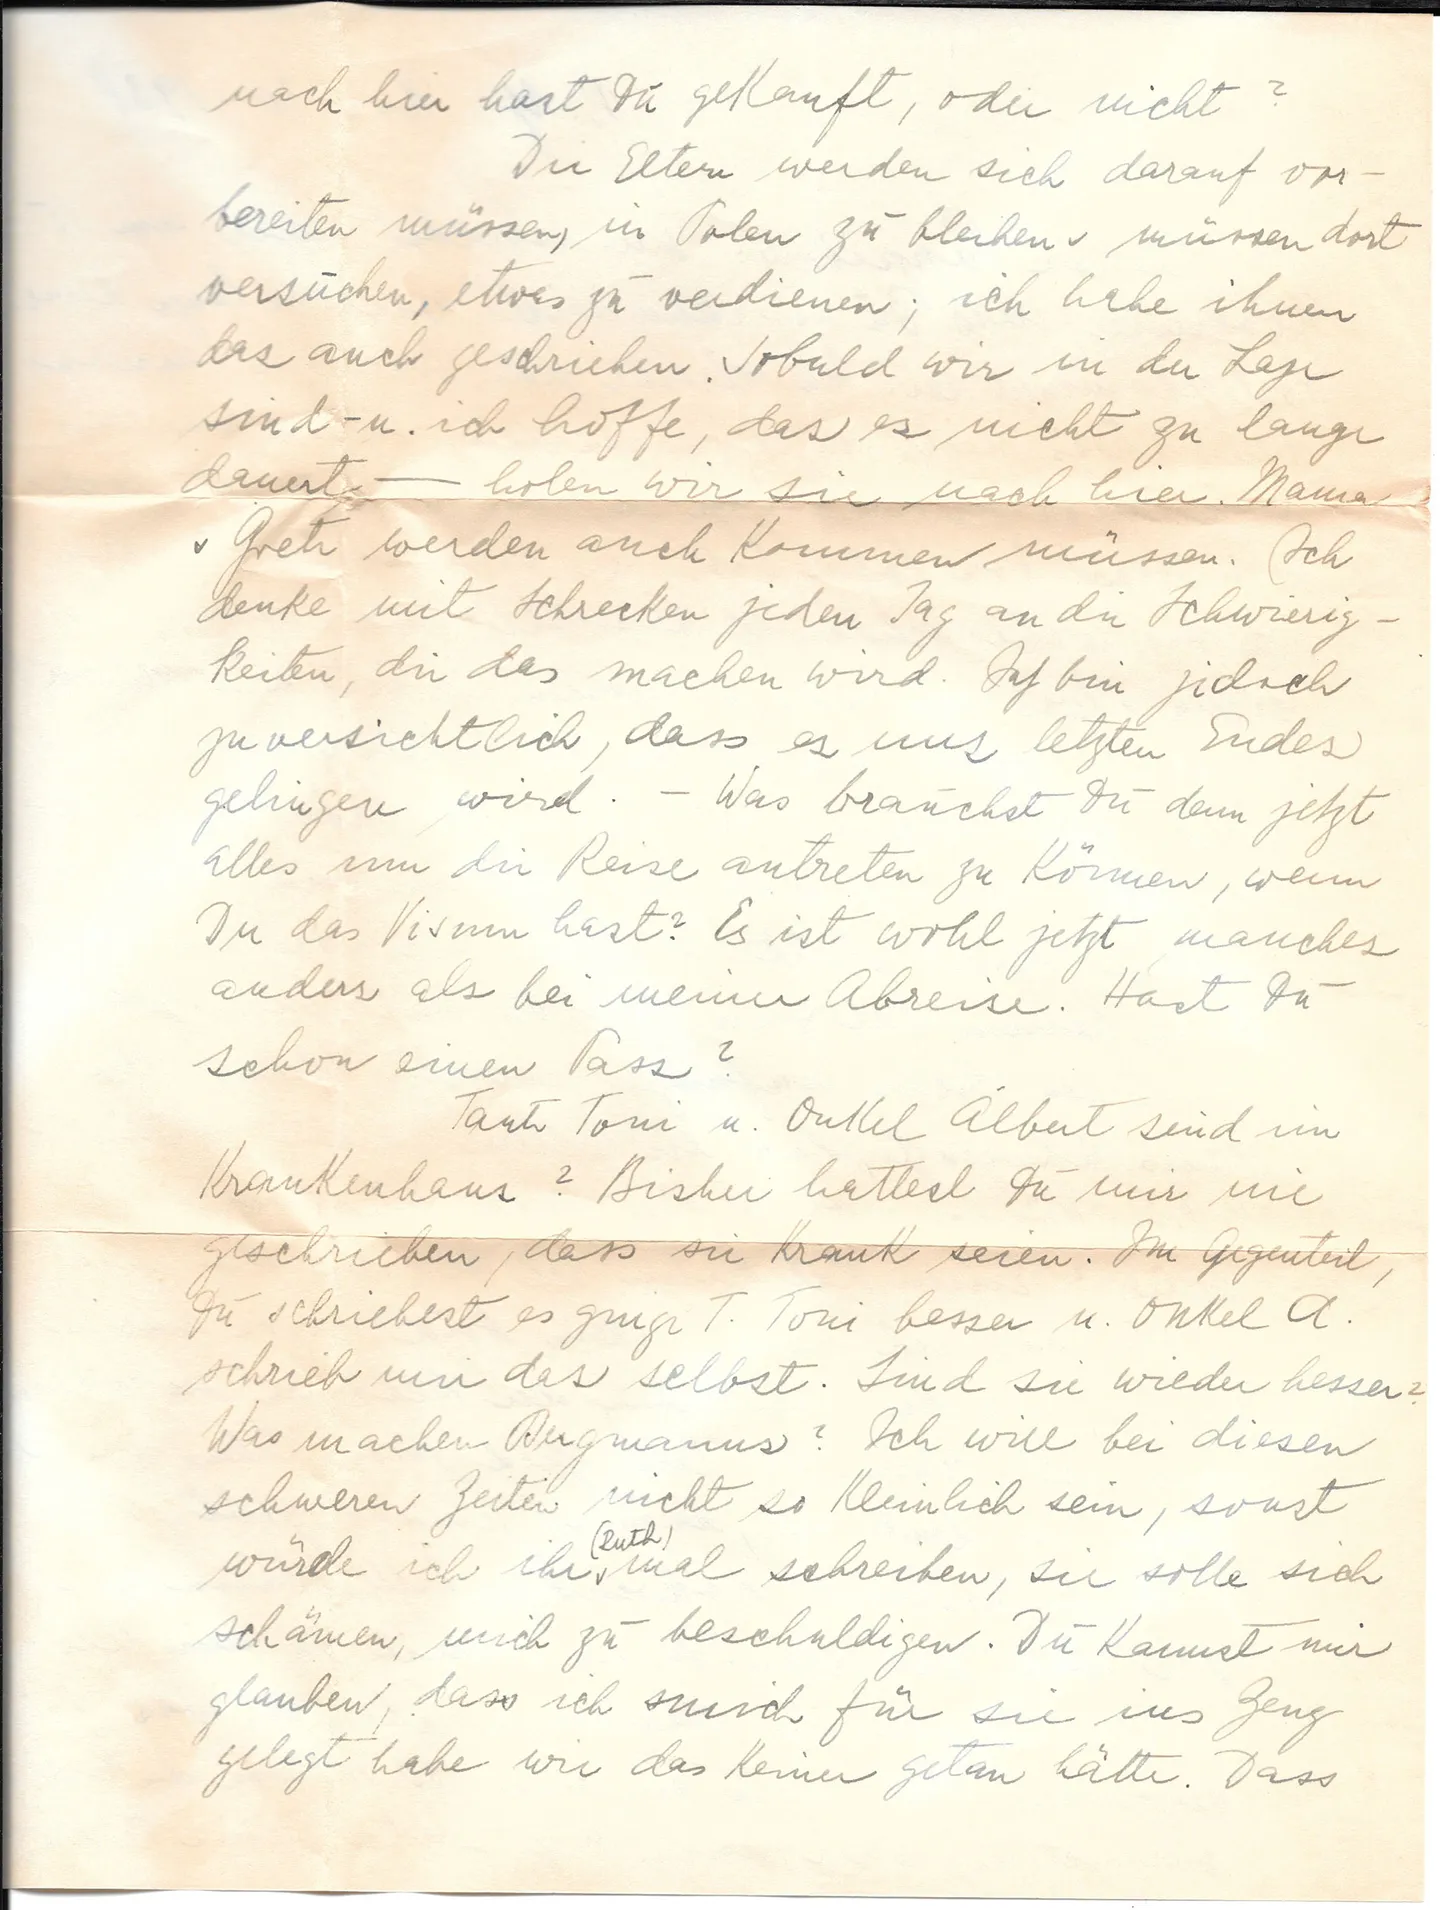 nach hier hast Du gekauft, oder nicht?
Die Eltern werden sich darauf vor-
bereiten müssen, in Polen zu bleiben u müssen dort
versuchen, etwas zu verdienen; ich habe ihnen
das auch geschrieben. Sobald wir in der Lage
sind - u. ich hoffe, das es nicht zu lange
dauert — holen wir sie nach hier. Mama
u Grete werden auch kommen müssen. Ich
denke mit Schrecken jeden Tag an die Schwierig-
keiten, die das machen wird. Ich bin jedoch
zuversichtlich, dass es uns letzten Endes
gelingen wird. - Was brauchst Du denn jetzt
alles um die Reise antreten zu können, wenn
Du das Visum hast? Es ist wohl jetzt manches
anders als bei meiner Abreise. Hast Du
schon einen Pass?
Tante Toni u. Onkel Albert sind im
Krankenhaus? Bisher hattest Du mir nie
geschrieben, dass sie krank seien. Im Gegenteil,
Du schriebest es ginge T. Toni besser u. Onkel A.
schrieb mir das selbst. Sind sie wieder besser?
Was machen Bergmanns? Ich will bei diesen
schweren Zeiten nicht so kleinlich sein, sonst
würde ich ihr (Ruth) mal schreiben, sie solle sich
schämen, mich zu beschuldigen. Du kannst mir
glauben, dass ich mich für sie ins Zeug
gelegt habe wie das keiner getan hätte. Dass